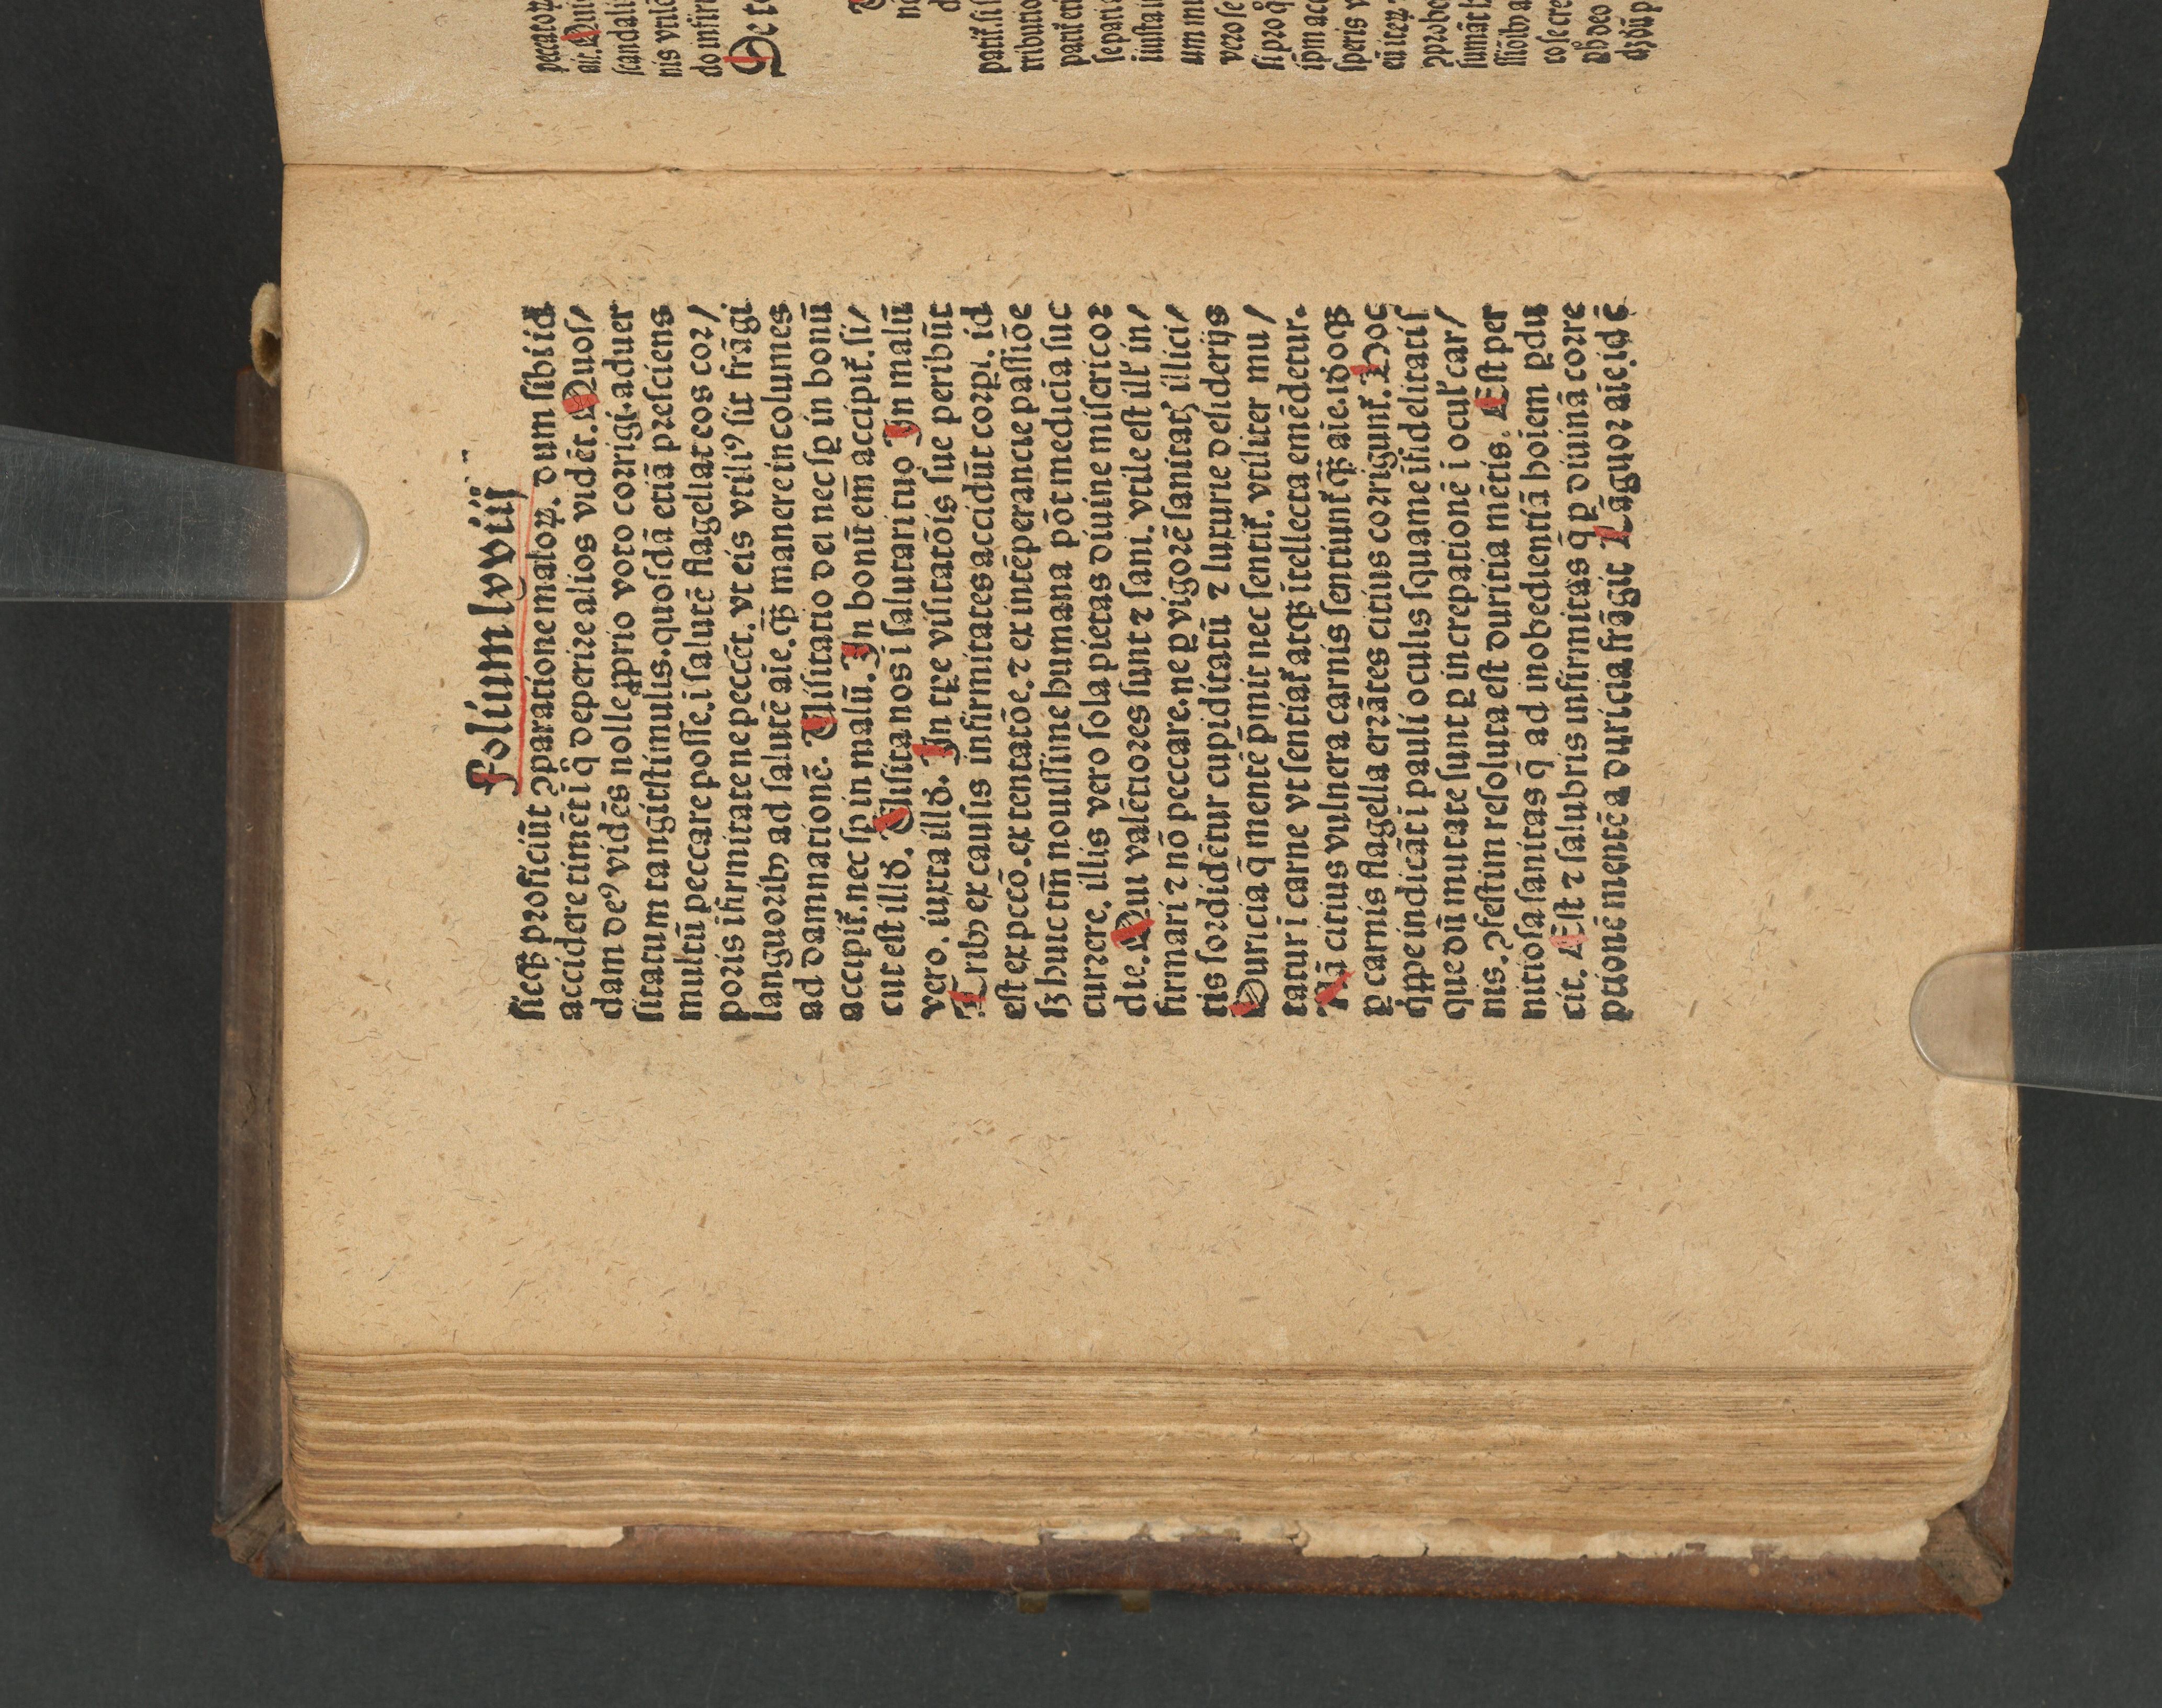 Folium lxviij
ſicqꝫ proficiūt ꝯparatione maloꝝ. dum ſibi id
accidere timēt i q̄ deperire alios vidēt. Quoſ/
dam deꝰ vidēs nolle ꝓprio voto corrigi. aduer
ſitatum tangit ſtimulis. quoſdā etiā preſciens
multū peccare poſſe. ī ſalutē flagellat eos cor/
poris īfirmitate ne peccēt. vt eis vtiliꝰ ſit frāgi
languoribꝰ ad ſalutē aīe. qꝫ manere incolumes
ad damnationē. Uiſitatio dei nec ſꝑ in bonū
accipit̄. nec ſꝑ in malū. In bonū em̄ accipit̄. ſi/
cut eſt illḋ. Uiſita nos ī ſalutari tuo In malū
vero. iuxta illḋ. In tꝑe viſitatōis ſue peribūt
Tribꝰ ex cauſis infirmitates accidūt corꝑi. id
eſt ex pctō. ex tentatōe. ⁊ ex intēperantie paſſiōe
ſꝫ huic tm̄ nouiſſime humana pōt medicīa ſuc
currere. illis vero ſola pietas diuine miſericor
die. Qui valētiores ſunt ⁊ ſani. vtile eſt ill' in/
firmari ⁊ nō peccare. ne ꝑ vigorē ſanitatꝭ illici/
tis ſordidētur cupiditatū ⁊ luxurie deſiderijs
Duricia q̄ mentē p̄mit nec ſentit̄. vtiliter mu/
tatur ī carne vt ſentiat̄ atqꝫ ītellecta emēdetur.
Nā citius vulnera carnis ſentiunt̄ qꝫ aīe. idoqꝫ
ꝑ carnis flagella errātes citius corrigunt̄. Hoc
q̇ppe indicāt ī pauli oculis ſquame īfidelitatiſ
que dū mutate ſunt ꝑ increpationē ī ocul' car/
nis. ꝯfeſtim reſoluta eſt duritia mētis. Eſt per
nitioſa ſanitas q̄ ad inobedientiā hoīem ꝑdu
cit. Eſt ⁊ ſalubris infirmitas q̄ ꝑ diuinā corre
ptionē mentē a duricia frāgit Lāguor aīe id ē